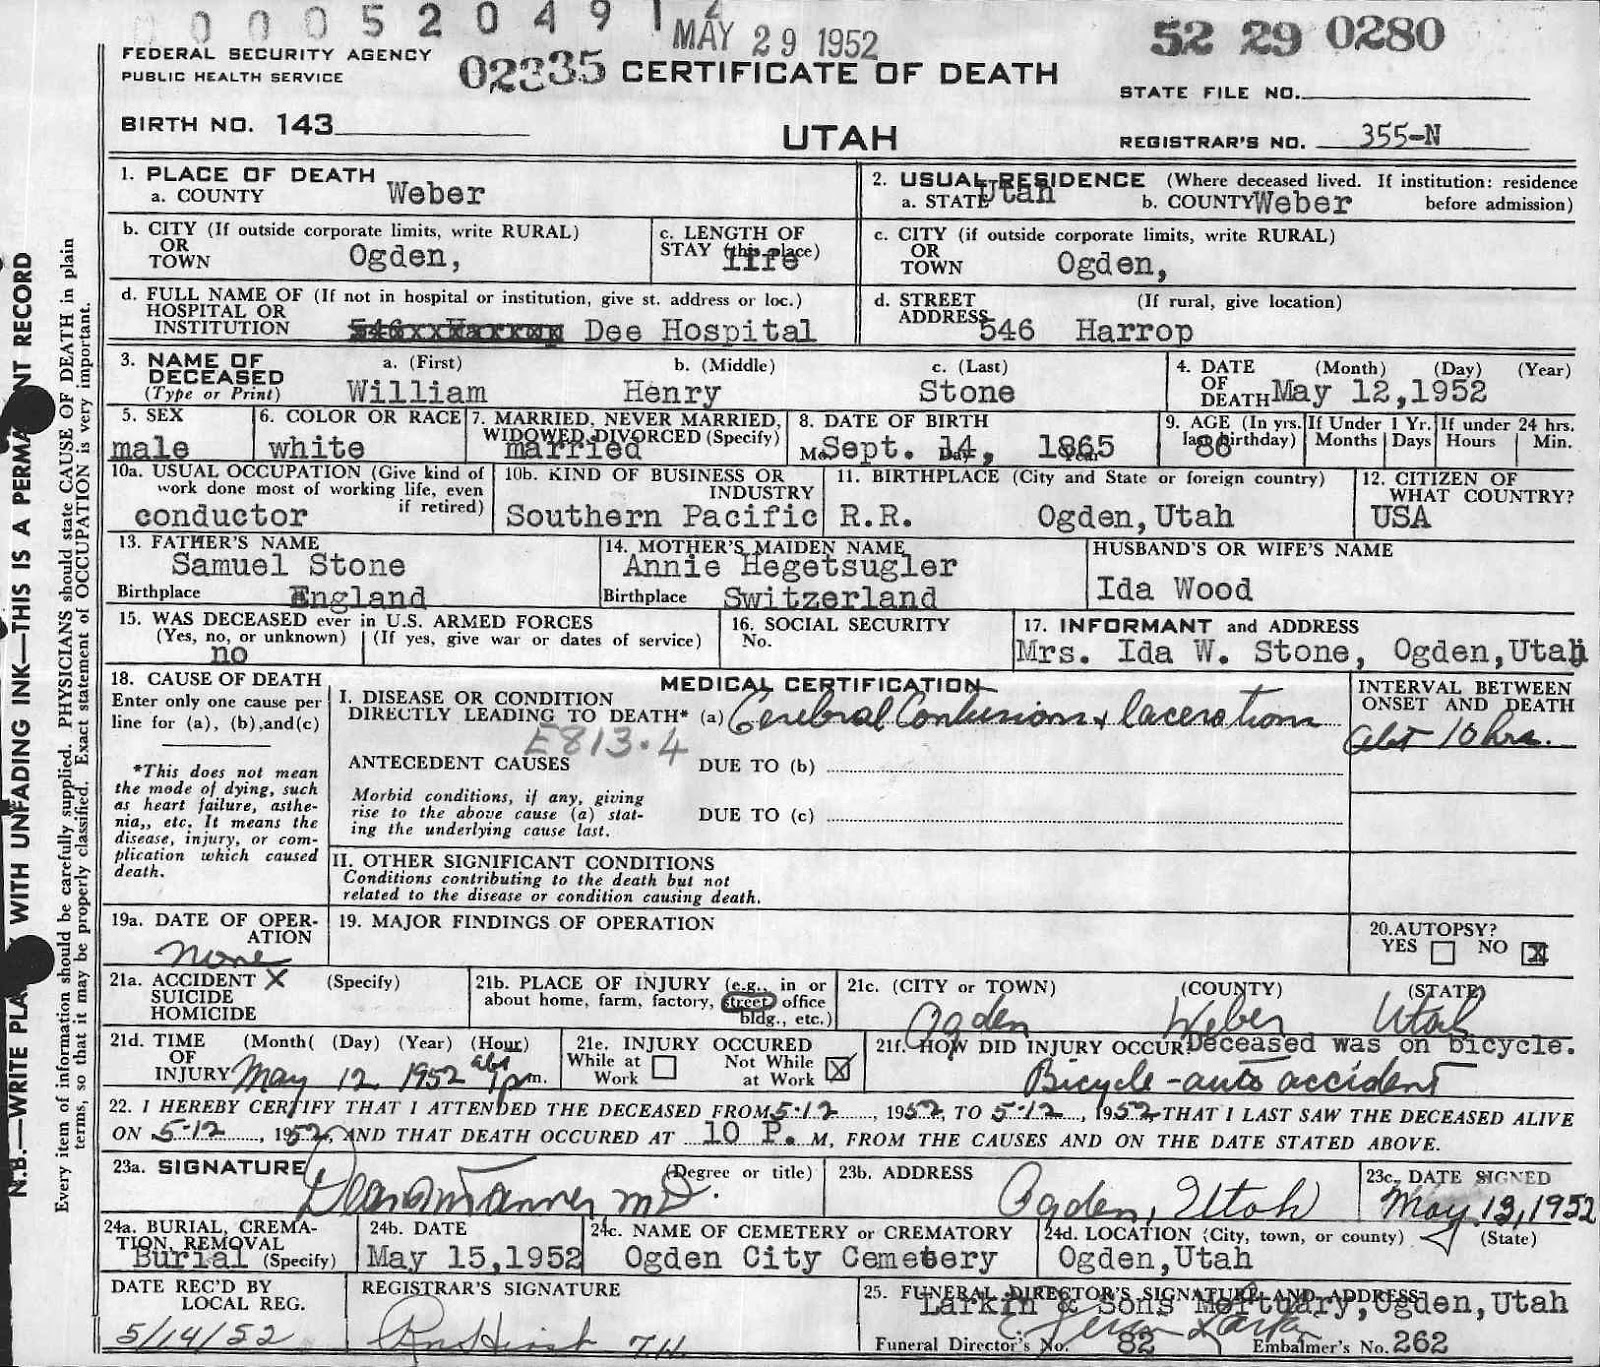 0005204912
MAY 29 1952
52 29 0280
FEDERAL SECURITY AGENCY
PUBLIC HEALTH SERVICE
02335 CERTIFICATE OF DEATH
STATE FILE NO.
BIRTH NO. 143
UTAH
REGISTRAR'S NO. 355-N
1. PLACE OF DEATH
a. COUNTY Weber
2. USUAL RESIDENCE (Where deceased lived. If institution: residence before admission)
a. STATE Utah b. COUNTY Weber
b. CITY (If outside corporate limits, write RURAL)
OR TOWN Ogden,
c. LENGTH OF
STAY (this place) life
c. CITY (if outside corporate limits, write RURAL)
OR TOWN Ogden,
d. FULL NAME OF (If not in hospital or institution, give st. address or loc.)
HOSPITAL OR
INSTITUTION 546xxHarrop Dee Hospital
d. STREET (If rural, give location)
ADDRESS 546 Harrop
3. NAME OF DECEASED (Type or Print)
a. (First) b. (Middle) c. (Last)
William Henry Stone
4. DATE OF DEATH (Month) (Day) (Year)
May 12,1952
5. SEX
male
6. COLOR OR RACE
white
7. MARRIED, NEVER MARRIED,
WIDOWED, DIVORCED (Specify)
married
8. DATE OF BIRTH
Mo. Day Year
Sept. 14, 1865
9. AGE (In yrs. last birthday) 86
If Under 1 Yr. Months Days
If under 24 hrs. Hours Min.
10a. USUAL OCCUPATION (Give kind of
work done most of working life, even
if retired)
conductor
10b. KIND OF BUSINESS OR
INDUSTRY
Southern Pacific R.R.
11. BIRTHPLACE (City and State or foreign country)
Ogden,Utah
12. CITIZEN OF
WHAT COUNTRY?
USA
13. FATHER'S NAME
Samuel Stone
Birthplace England
14. MOTHER'S MAIDEN NAME
Annie Hegetsugler
Birthplace Switzerland
HUSBAND'S OR WIFE'S NAME
Ida Wood
15. WAS DECEASED ever in U.S. ARMED FORCES
(Yes, no, or unknown) (If yes, give war or dates of service)
no
16. SOCIAL SECURITY
No.
17. INFORMANT and ADDRESS
Mrs. Ida W. Stone, Ogden,Utah
18. CAUSE OF DEATH
Enter only one cause per
line for (a), (b),and(c)
*This does not mean
the mode of dying, such
as heart failure, asthe-
nia,, etc. It means the
disease, injury, or com-
plication which caused
death.
MEDICAL CERTIFICATION
I. DISEASE OR CONDITION
DIRECTLY LEADING TO DEATH* (a) Cerebral Contusions & lacerations
E813.4
ANTECEDENT CAUSES DUE TO (b)
Morbid conditions, if any, giving
rise to the above cause (a) stat-
ing the underlying cause last.
DUE TO (c)
II. OTHER SIGNIFICANT CONDITIONS
Conditions contributing to the death but not
related to the disease or condition causing death.
INTERVAL BETWEEN
ONSET AND DEATH
abt 10 hrs.
19a. DATE OF OPER-
ATION
none
19. MAJOR FINDINGS OF OPERATION
20.AUTOPSY?
YES NO X
21a. ACCIDENT X (Specify)
SUICIDE
HOMICIDE
21b. PLACE OF INJURY (e.g., in or
about home, farm, factory, street, office
bldg., etc.)
21c. (CITY or TOWN) (COUNTY) (STATE)
Ogden Weber Utah
21d. TIME OF INJURY (Month( (Day) (Year) (Hour)
May 12 1952 abt 1 pm.
21e. INJURY OCCURED
While at Work Not While at Work X
21f. HOW DID INJURY OCCUR Deceased was on bicycle.
Bicycle - auto accident
22. I HEREBY CERTIFY THAT I ATTENDED THE DECEASED FROM 5-12, 1952, TO 5-12, 1952, THAT I LAST SAW THE DECEASED ALIVE
ON 5-12, 1952, AND THAT DEATH OCCURED AT 10 P. M, FROM THE CAUSES AND ON THE DATE STATED ABOVE.
23a. SIGNATURE (Degree or title)
Tanner, MD.
23b. ADDRESS
Ogden, Utah
23c. DATE SIGNED
May 13, 1952
24a. BURIAL, CREMA-
TION, REMOVAL
Burial (Specify)
24b. DATE
May 15,1952
24c. NAME OF CEMETERY or CREMATORY
Ogden City Cemetery
24d. LOCATION (City, town, or county) (State)
Ogden,Utah
DATE REC'D BY
LOCAL REG.
5/14/52
REGISTRAR'S SIGNATURE
25. FUNERAL DIRECTOR'S SIGNATURE AND ADDRESS
Larkin & Sons Mortuary,Ogden,Utah
Larkin
Funeral Director's No. 82 Embalmer's No. 262
N.B.—WRITE PLA WITH UNFADING INK—THIS IS A PERMA NT RECORD
Every item of information should be carefully supplied. PHYSICIANS should state CAUSE OF DEATH in plain
terms, so that it may be properly classified. Exact statement of OCCUPATION is very important.